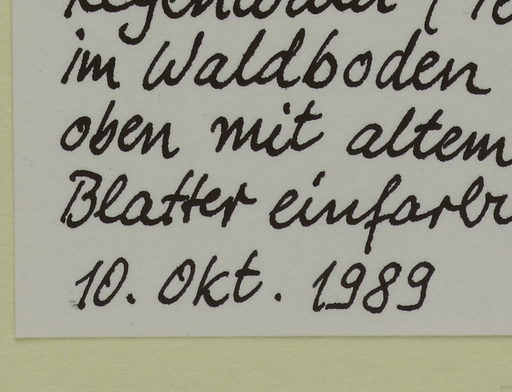 Regenwald
im Waldboden
oben mit altem
Blatter einfarbi
10. Okt. 1989